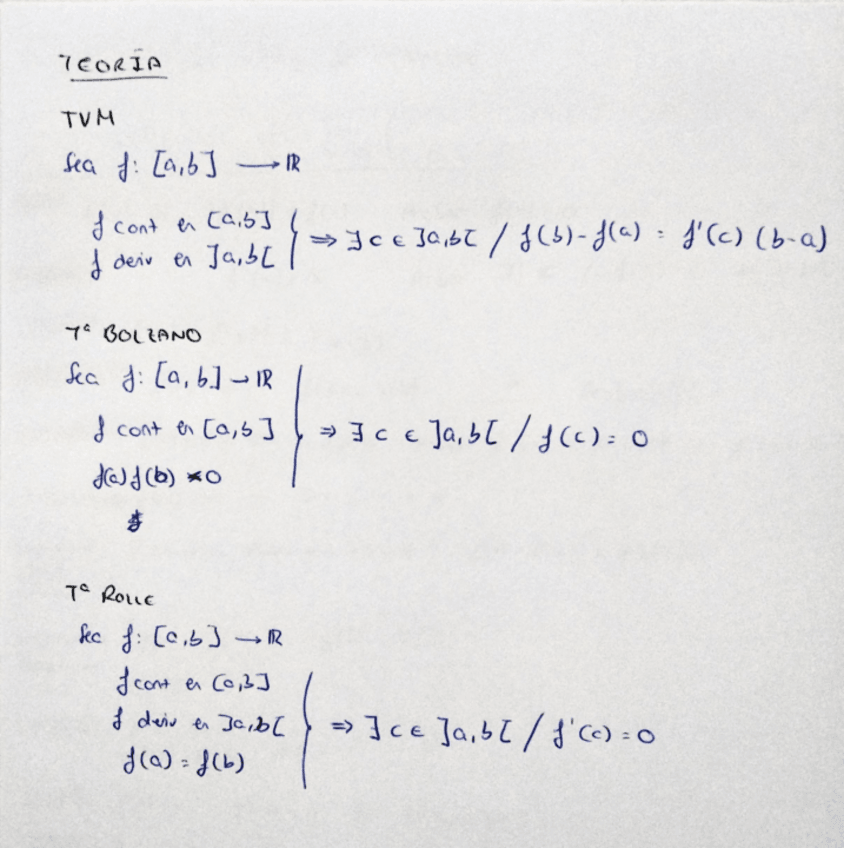 TEORÍA
TVM
Sea f: [a,b] → ℝ
f cont en [a,b]
f deriv en ]a,b[ } ⇒ ∃ c ∈ ]a,b[ / f(b)-f(a) = f'(c) (b-a)
Tª BOLZANO
Sea f: [a,b] → ℝ
f cont en [a,b] } ⇒ ∃ c ∈ ]a,b[ / f(c) = 0
f(a)f(b) < 0
Tª ROLLE
Sea f: [a,b] → ℝ
f cont en [a,b]
f deriv en ]a,b[ } ⇒ ∃ c ∈ ]a,b[ / f'(c) = 0
f(a) = f(b)